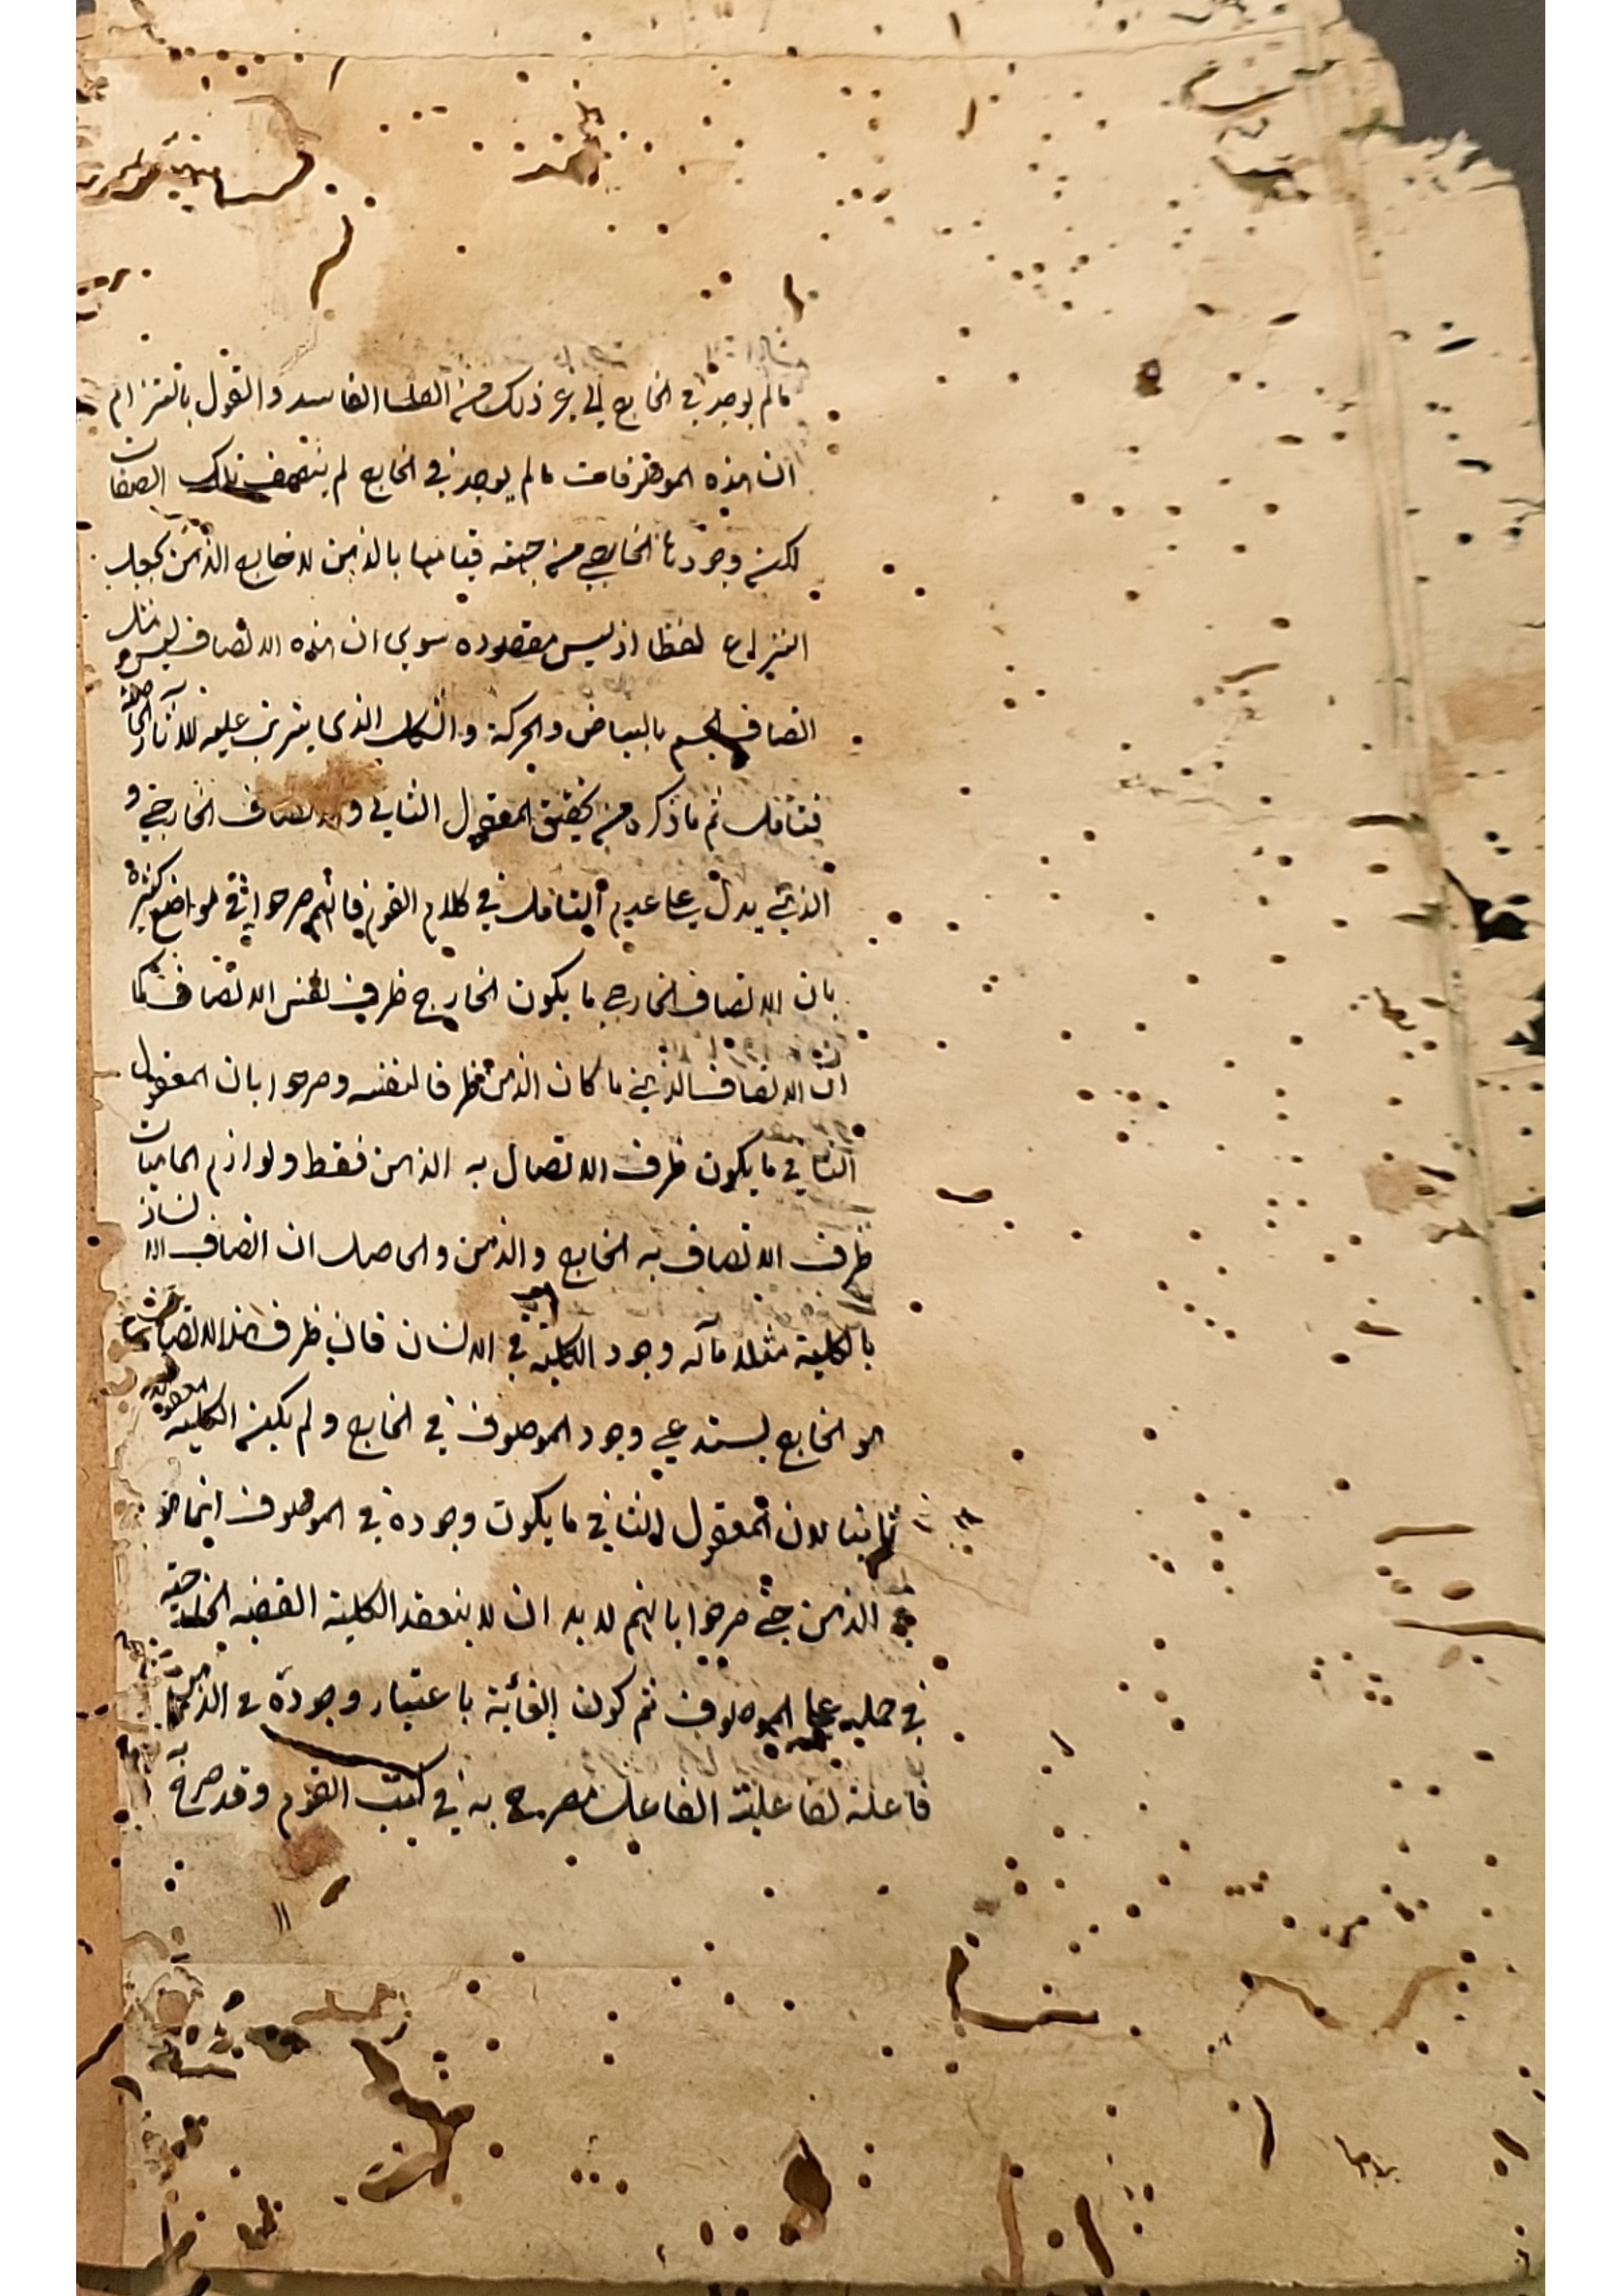 مالم يوجد في الخارج الى غير ذلك من الفاسد والقول بالتزام
ان هذه الموصوفات مالم يوجد في الخارج لم يتصف بتلك الصفات
لكن وجودها الخارجي من جهة قيامها بالذهن لا خارج الذهن يجعل
النزاع لفظا اذ ليس مقصوده سوى ان هذه الاتصاف ليس مثل
اتصاف الجسم بالبياض والحركة والشكل الذي يترتب عليه الآثار الخارجية
فتامل ثم ما ذكره من تحقيق المعقول الثاني والاتصاف الخارجي و
الذهني يدل على عدم التامل في كلام القوم فانهم صرحوا في مواضع كثيرة
بان الاتصاف الخارجي ما يكون الخارج ظرف لنفس الاتصاف كما
ان الاتصاف الذهني ما كان الذهن ظرفا لنفسه وصرحوا بان المعقول
الثاني ما يكون ظرف الاتصال به الذهن فقط ولوازم الماهيات
ظرف الاتصاف به الخارج والذهن والحاصل ان اتصاف الانسان
بالكلية مثلا مآله وجود الكلية في الانسان فان ظرف هذا الاتصاف
هو الخارج يستدعي وجود الموصوف في الخارج ولم يكن الكلية معقولا
ثانيا لان المعقول الثاني ما يكون وجوده في الموصوف انما هو
في الذهن حتى صرحوا بانهم لابد ان لا ينعقد الكلية القضية الخارجية
في حمله على الموصوف ثم كون الغائية باعتبار وجوده في الذهن
فاعلة لفاعلية الفاعل مصرح به في كتب القوم وقد صرح